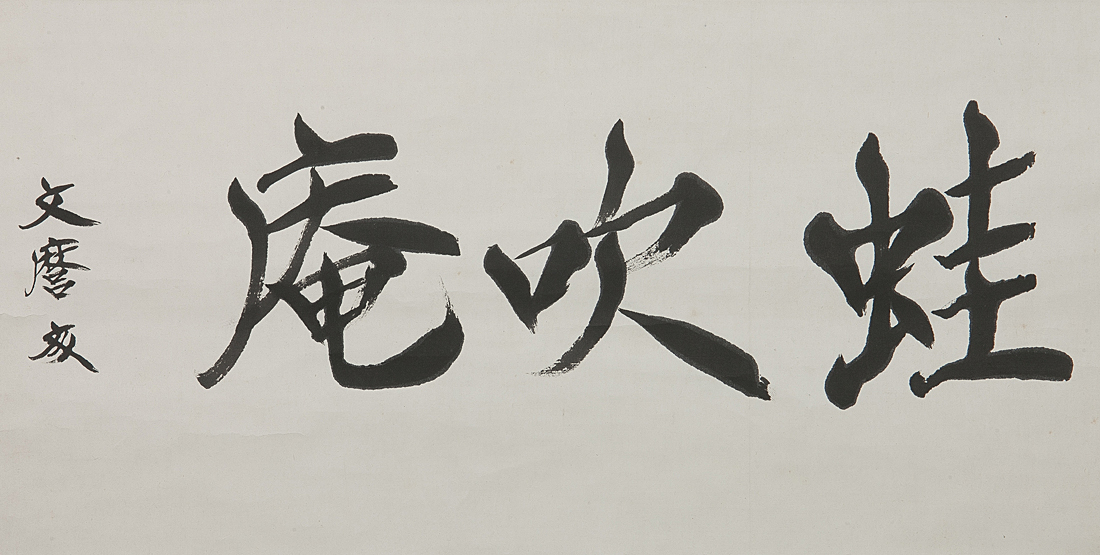 蛙吹庵
文麿